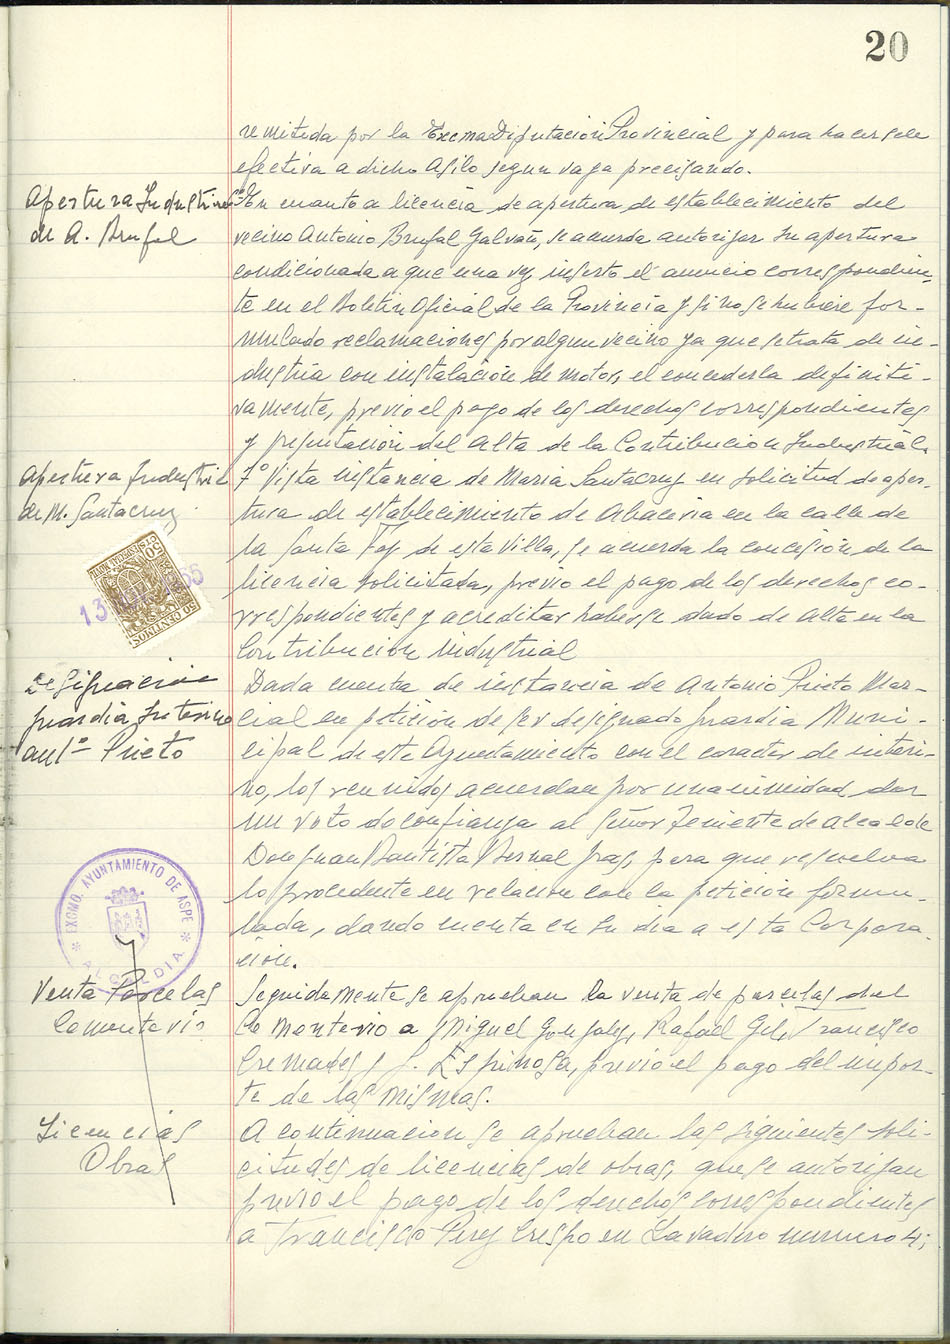 20
remitida por la Excma Diputación Provincial y para hacersele
efectiva a dicho Asilo segun vaya precisando.
Apertura Industria
de A. Brufal
En cuanto a licencia de apertura de establecimiento del
vecino Antonio Brufal Galvañ, se acuerda autorizar su apertura
condicionada a que una vez inserto el anuncio correspondien-
te en el Boletin Oficial de la Provincia y si no se hubiere for-
mulado reclamaciones por algun vecino ya que se trata de in-
dustria con instalación de motor, el concederla definiti-
vamente, previo el pago de los derechos correspondientes
y presentación del alta de la Contribucion Industrial.
Apertura Industria
de M. Santacruz
7º Vista instancia de Maria Santacruz en solicitud de aper-
tura de establecimiento de Abaceria en la calle de
la Santa Faz de esta Villa, se acuerda la concesión de la
licencia solicitada, previo el pago de los derechos co-
rrespondientes y acreditar haberse dado de alta en la
Contribución industrial
50
CTS ESPECIAL MOVIL
50 CENTIMOS
Designacion
guardia Interino
antº Prieto
Dada cuenta de instancia de Antonio Prieto Mar-
cial en petición de ser designado guardia Muni-
cipal de este Ayuntamiento con el caracter de interi-
no, los reunidos acuerdan por unanimidad dar
un voto de confianza al Señor Teniente de Alcalde
Don Juan Bautista Bernal para que resuelva
lo procedente en relación con la petición formu-
lada, dando cuenta en su dia a esta Corpora-
ción.
EXCMO. AYUNTAMIENTO DE ASPE
* ALCALDIA *
Venta Parcelas
Cementerio
Seguidamente se aprueban la venta de parcelas del
Cementerio a Miguel Gonzalez, Rafael Gil, Francisco
Cremades y J. Espinosa, previo el pago del impor-
te de las mismas.
Licencias
Obras
A continuacion se aprueban las siguientes soli-
citudes de licencias de obras, que se autorizan
previo el pago de los derechos correspondientes
a Francisco Perez Crespo en Lavadero numero 4;